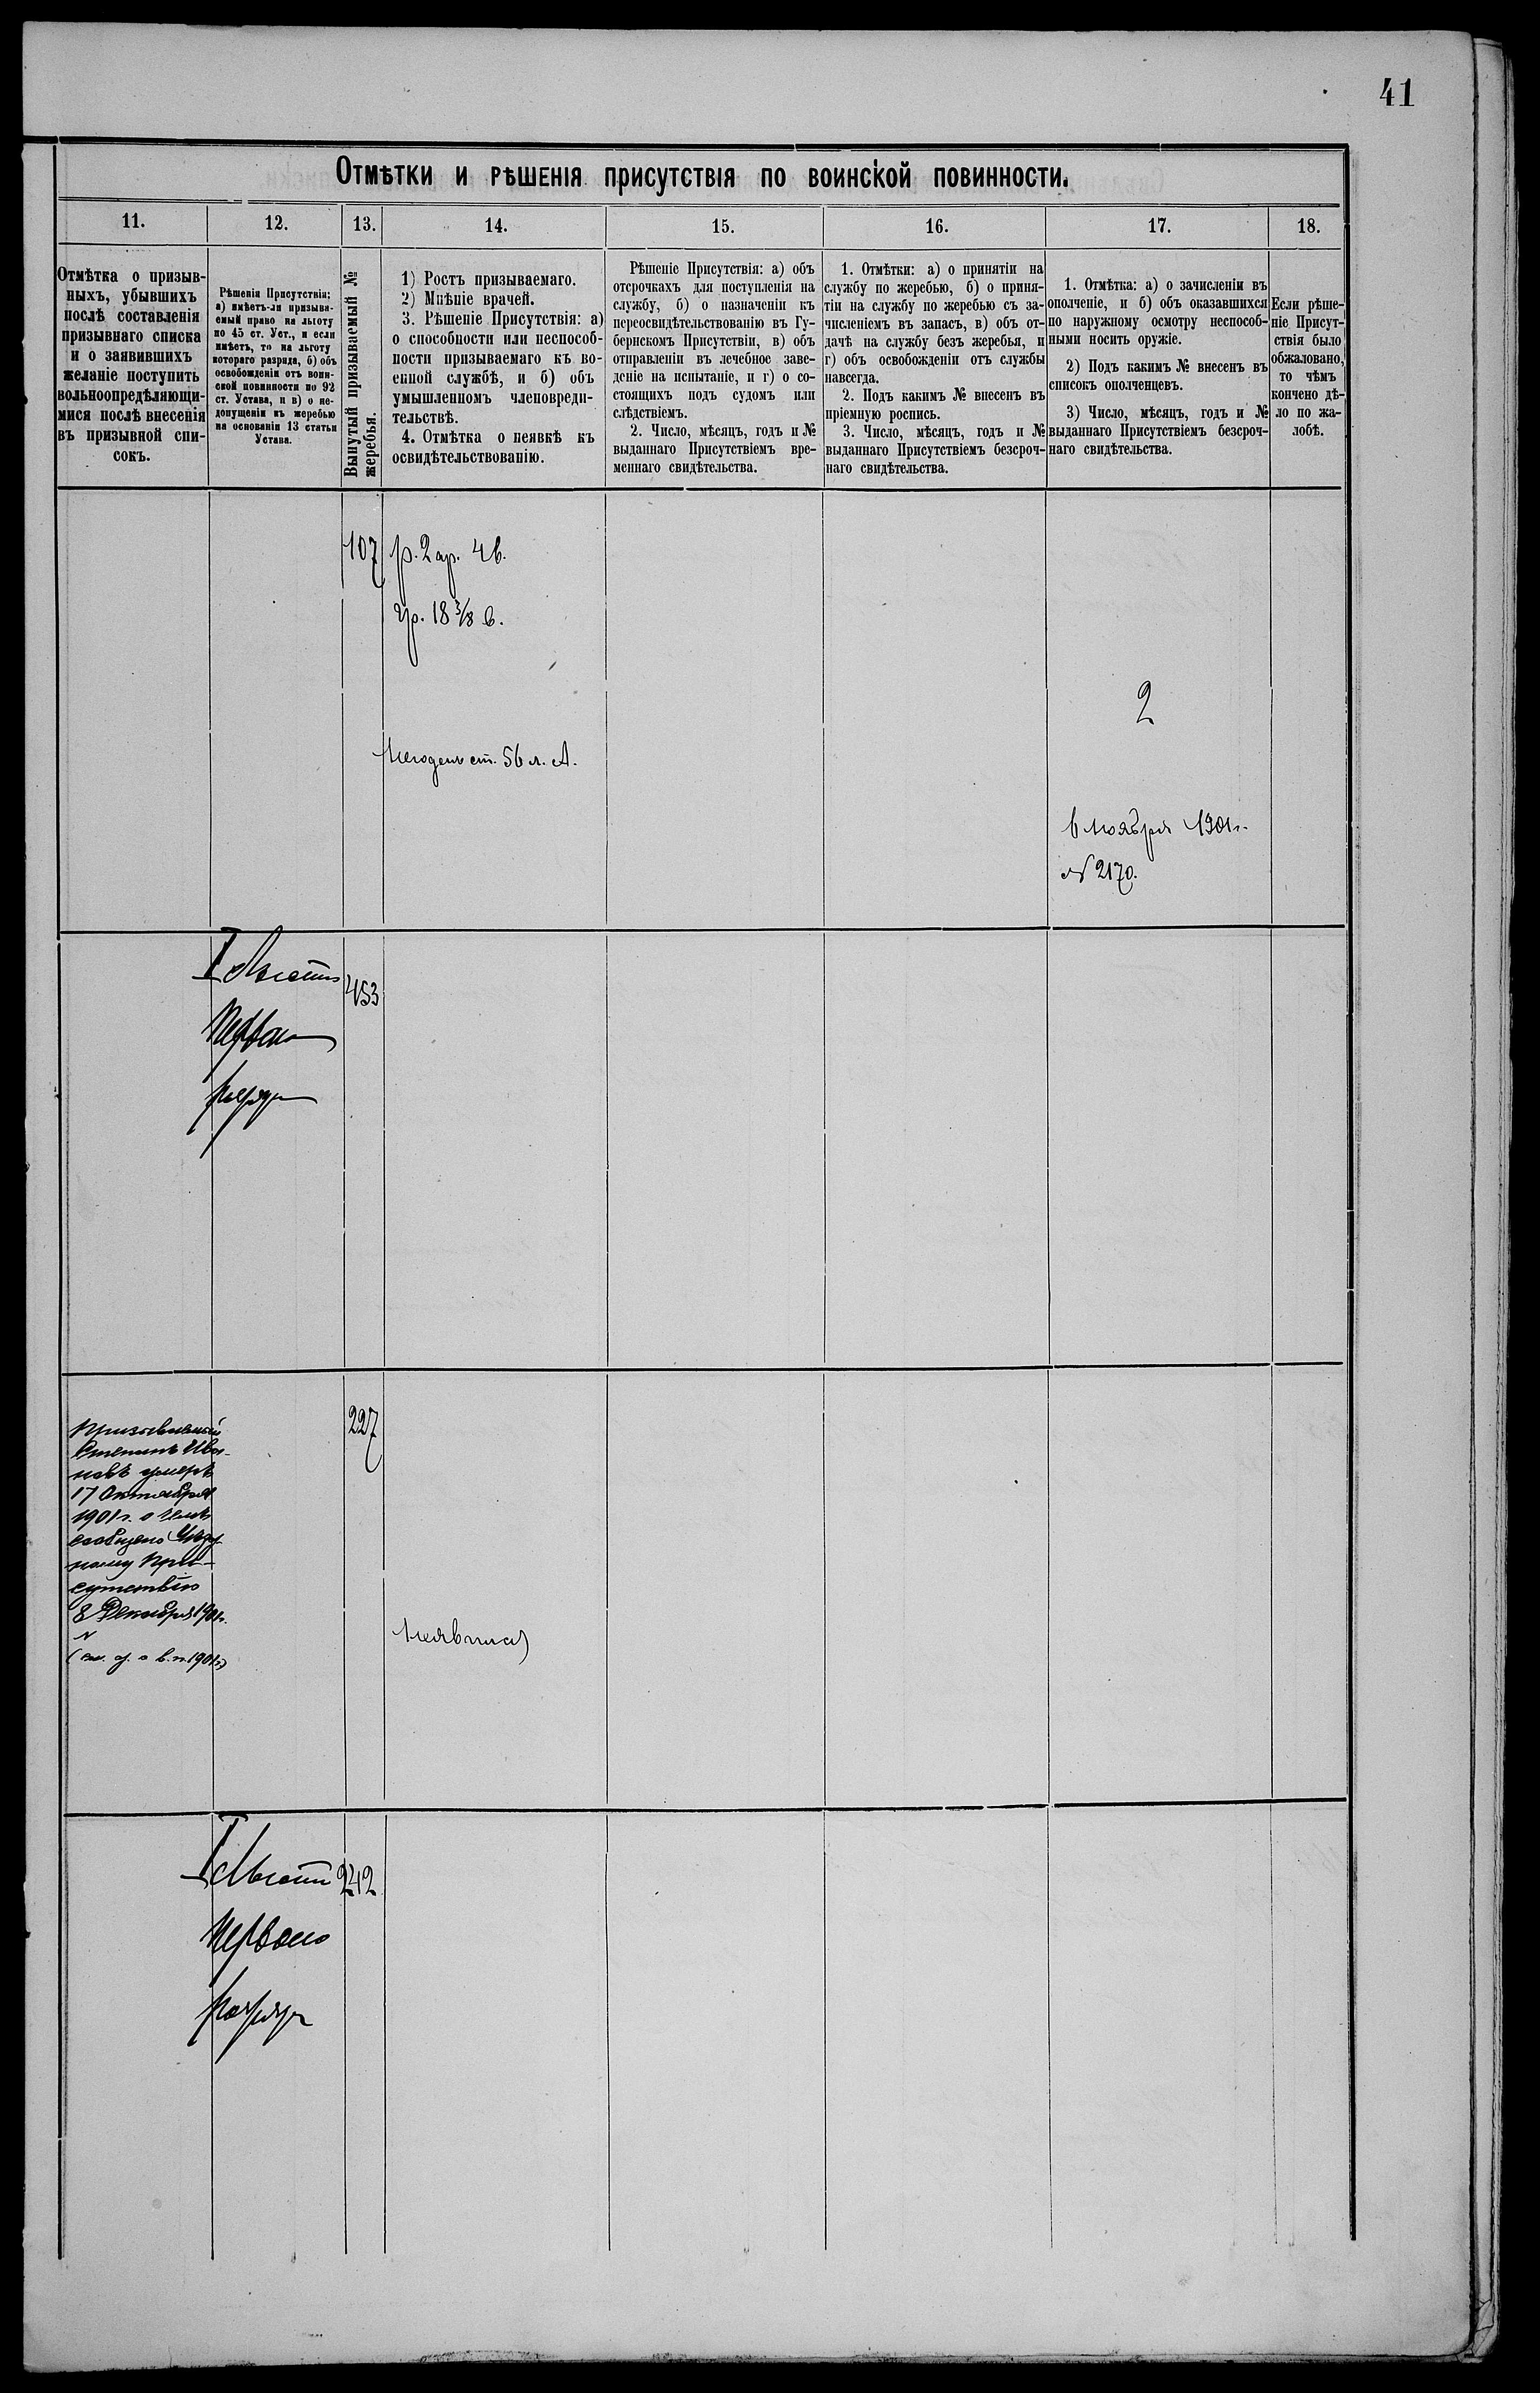 41
Отмѣтки и рѣшенія присутствія по воинской повинности.
11.
12.
13.
14.
15.
16.
17.
18.
Отмѣтка о призыв-
ныхъ, убывшихъ
послѣ составленія
призывнаго списка
и о заявившихъ
желаніе поступить
вольноопредѣляющи-
мися послѣ внесенія
въ призывной спи-
сокъ.
Рѣшенія Присутствія:
а) имѣетъ-ли призыва-
емый право на льготу
по 45 ст. Уст., и если
имѣетъ, то на льготу
котораго разряда, б) объ
освобожденіи отъ воин-
ской повинности по 92
ст. Устава, и в) о не-
допущеніи къ жеребью
на основаніи 13 статьи
Устава.
Вынутый призываемый №
жеребья.
1) Ростъ призываемаго.
2) Мнѣніе врачей.
3. Рѣшеніе Присутствія: а)
о способности или неспособ-
ности призываемаго къ во-
енной службѣ, и б) объ
умышленномъ членовреди-
тельствѣ.
4. Отмѣтка о неявкѣ къ
освидѣтельствованію.
Рѣшеніе Присутствія: а) объ
отсрочкахъ для поступленія на
службу, б) о назначеніи къ
переосвидѣтельствованію въ Гу-
бернскомъ Присутствіи, в) объ
отправленіи въ лечебное заве-
деніе на испытаніе, и г) о со-
стоящихъ подъ судомъ или
слѣдствіемъ.
2. Число, мѣсяцъ, годъ и №
выданнаго Присутствіемъ вре-
меннаго свидѣтельства.
1. Отмѣтки: а) о принятіи на
службу по жеребью, б) о приня-
тіи на службу по жеребью съ за-
численіемъ въ запасъ, в) объ от-
дачѣ на службу безъ жеребья, и
г) объ освобожденіи отъ службы
навсегда.
2. Подъ какимъ № внесенъ въ
пріемную роспись.
3. Число, мѣсяцъ, годъ и №
выданнаго Присутствіемъ безсроч-
наго свидѣтельства.
1. Отмѣтка: а) о зачисленіи въ
ополченіе, и б) объ оказавшихся
по наружному осмотру неспособ-
ными носить оружіе.
2) Подъ какимъ № внесенъ въ
списокъ ополченцевъ.
3) Число, мѣсяцъ, годъ и №
выданнаго Присутствіемъ безсроч-
наго свидѣтельства.
Если рѣше-
ніе Присут-
ствія было
обжаловано,
то чѣмъ
кончено дѣ-
ло по жа-
лобѣ.
107
р. 2 ар. 4 в.
гр. 18 3/8 в.
2
Негоденъ ст. 56 л. А.
6 ноября 1901 г.
№ 2170.
I Льгота
453
Перваго
разряда
Призываемый
Степанъ Ива-
новъ умеръ
17 Октября
1901 г. о чемъ
сообщено Уѣзд
ному При-
сутствію
8 Декабря 1901 г.
№
227
Неявился
I Льгота
242
Перваго
разряда